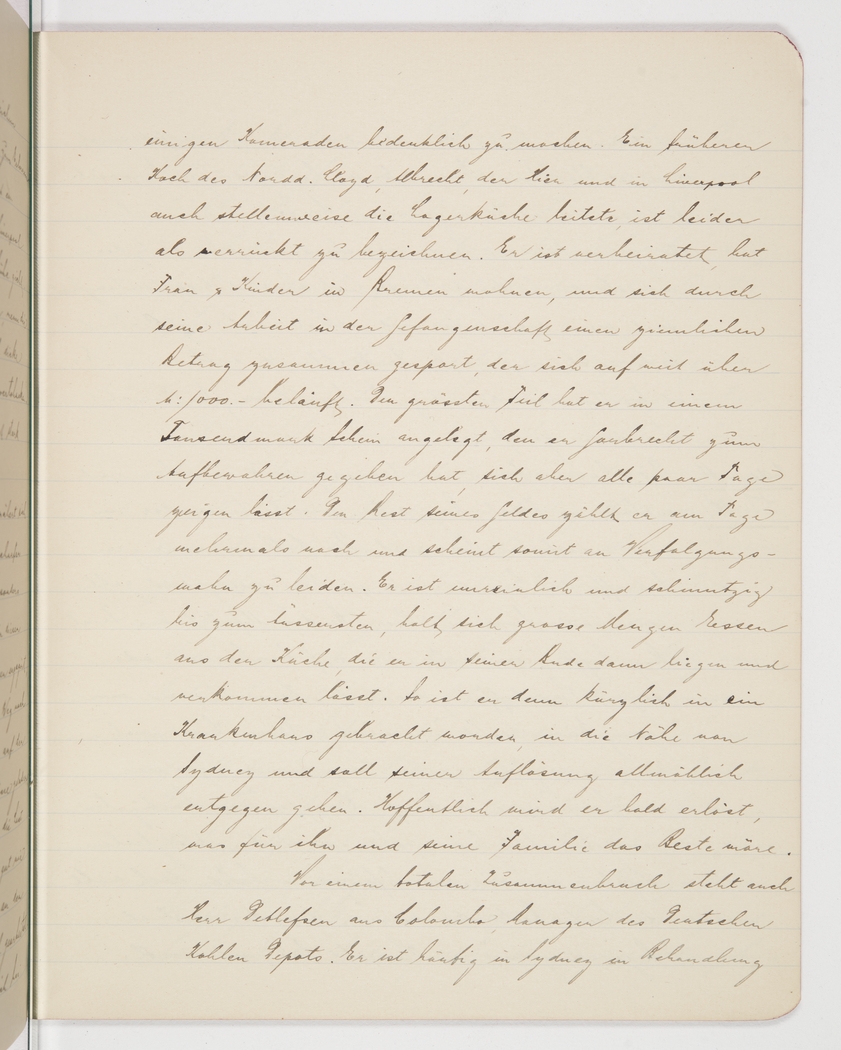 einigen Kameraden bedenklich zu machen. Ein früherer
Koch des Nordd. Lloyd, Ulbrecht, der hier und in Liverpool
auch stellenweise die Lagerküche leitete, ist leider
als verrückt zu bezeichnen. Er ist verheiratet, hat
Frau & Kinder in Bremen wohnen, und sich durch
seine Arbeit in der Gefangenschaft einen ziemlichen
Betrag zusammen gespart, der sich auf weit über
M: 1000.- beläuft. Den grössten Teil hat er in einem
Tausendmark Schein angelegt, den er Garbrecht zum
Aufbewahren gegeben hat, sich aber alle paar Tage
zeigen lässt. Den Rest seines Geldes zählt er am Tage
mehrmals nach und scheint somit an Verfolgungs-
wahn zu leiden. Er ist unreinlich und schmutzig
bis zum äussersten, holt sich grosse Mengen Essen
aus der Küche, die er in seiner Bude dann liegen und
verkommen lässt. So ist er denn kürzlich in ein
Krankenhaus gebracht worden, in die Nähe von
Sydney und soll seiner Auflösung allmählich
entgegen gehen. Hoffentlich wird er bald erlöst,
was für ihn und seine Familie das Beste wäre.
Vor einem totalen Zusammenbruch steht auch
Herr Detlefsen aus Colombo, Manager des Deutschen
Kohlen Depots. Er ist häufig in Sydney in Behandlung